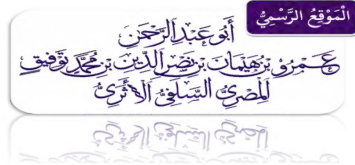 الْمَوْقِعُ الرَّسْمِيُّ
أَبُو عَبْدِ الرَّحْمَنِ
عَمْرُو بْنُ هَيْمَانَ بْنِ نَصْرِ الدِّينِ بْنِ مُحَمَّدٍ تَوْفِيقٍ
الْمِصْرِيُّ السَّلَفِيُّ الْأَثَرِيُّ